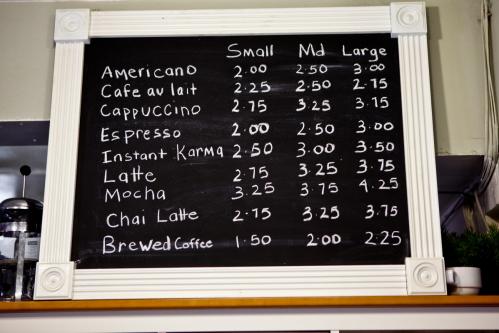 Small Md Large
Americano 2.00 2.50 3.00
Cafe au lait 2.25 2.50 2.75
Cappuccino 2.75 3.25 3.75
Espresso 2.00 2.50 3.00
Instant Karma 2.50 3.00 3.50
Latte 2.75 3.25 3.75
Mocha 3.25 3.75 4.25
Chai Latte 2.75 3.25 3.75
Brewed Coffee 1.50 2.00 2.25